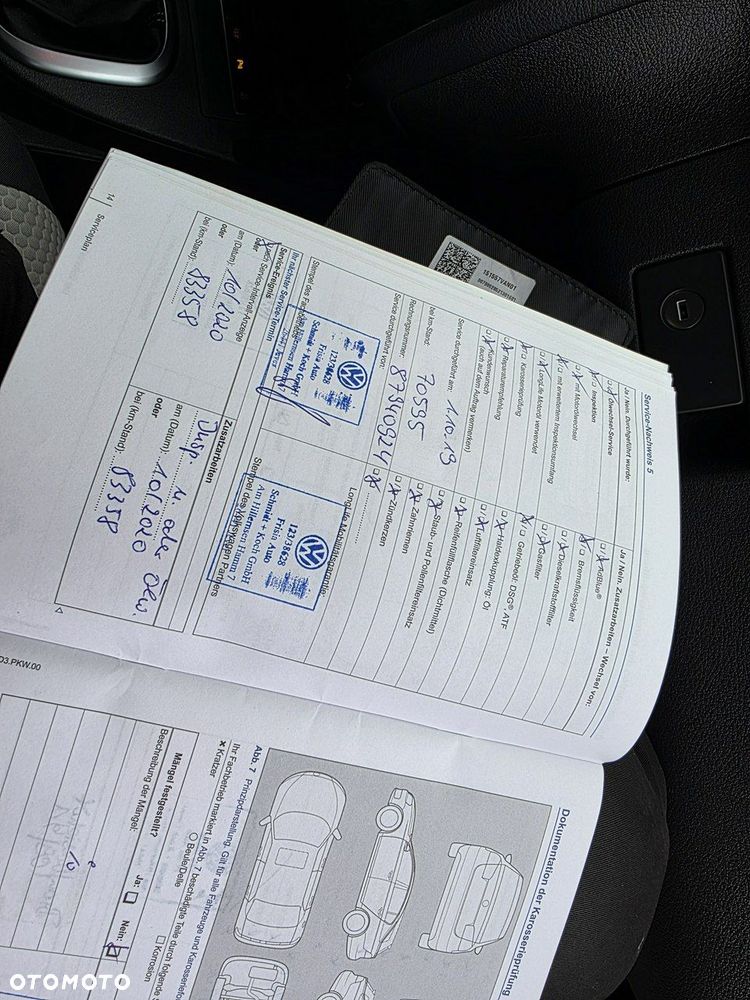 Service-Nachweis 5
Ja / Nein. Durchgeführt wurde:
Ölwechsel-Service
Inspektion
mit Motorölwechsel
mit erweitertem Inspektionsumfang
LongLife Motoröl verwendet
Karosserieprüfung
Reparaturempfehlung
Kundenwunsch
(auch auf dem Auftrag vermerken)
Service durchgeführt am: 1.10.19
bei km-Stand: 70595
Rechnungsnummer: 87840924
Service durchgeführt von:
Stempel des
12373828
Frisia Auto
Schmidt + Koch GmbH
Ihr nächster Service-Termin
Service-Ereignis
nach Service-Intervall-Anzeige
oder
am (Datum): 10/2020
oder
bei (km-Stand): 83358
14 Serviceplan
Ja / Nein. Zusatzarbeiten – Wechsel von:
AdBlue®
Bremsflüssigkeit
Dieselkraftstofffilter
Gasfilter
Getriebeöl: DSG®, ATF
Haldexkupplung: Öl
Luftfiltereinsatz
Reifenfüllflasche (Dichtmittel)
Staub- und Pollenfiltereinsatz
Zahnriemen
Zündkerzen
LongLife Mobilitätsgarantie:
12373828
Frisia Auto
Schmidt + Koch GmbH
Am Hillernsen Hamm 7
Stempel des Volkswagen Partners
Zusatzarbeiten
Insp. u. oder Ölw.
am (Datum): 10/2020
oder
bei (km-Stand): 83358
03.PKW.00
Dokumentation der Karosserieprüfung
Abb. 7 Prinzipdarstellung. Gilt für alle Fahrzeuge und
Ihr Fachbetrieb markiert in Abb. 7 beschädigte Teile durch folgende
Kratzer
Beule/Delle
Korrosion
Mängel festgestellt?
Ja:
Nein:
Beschreibung der Mängel:
1S1557VAN01
OTOMOTO